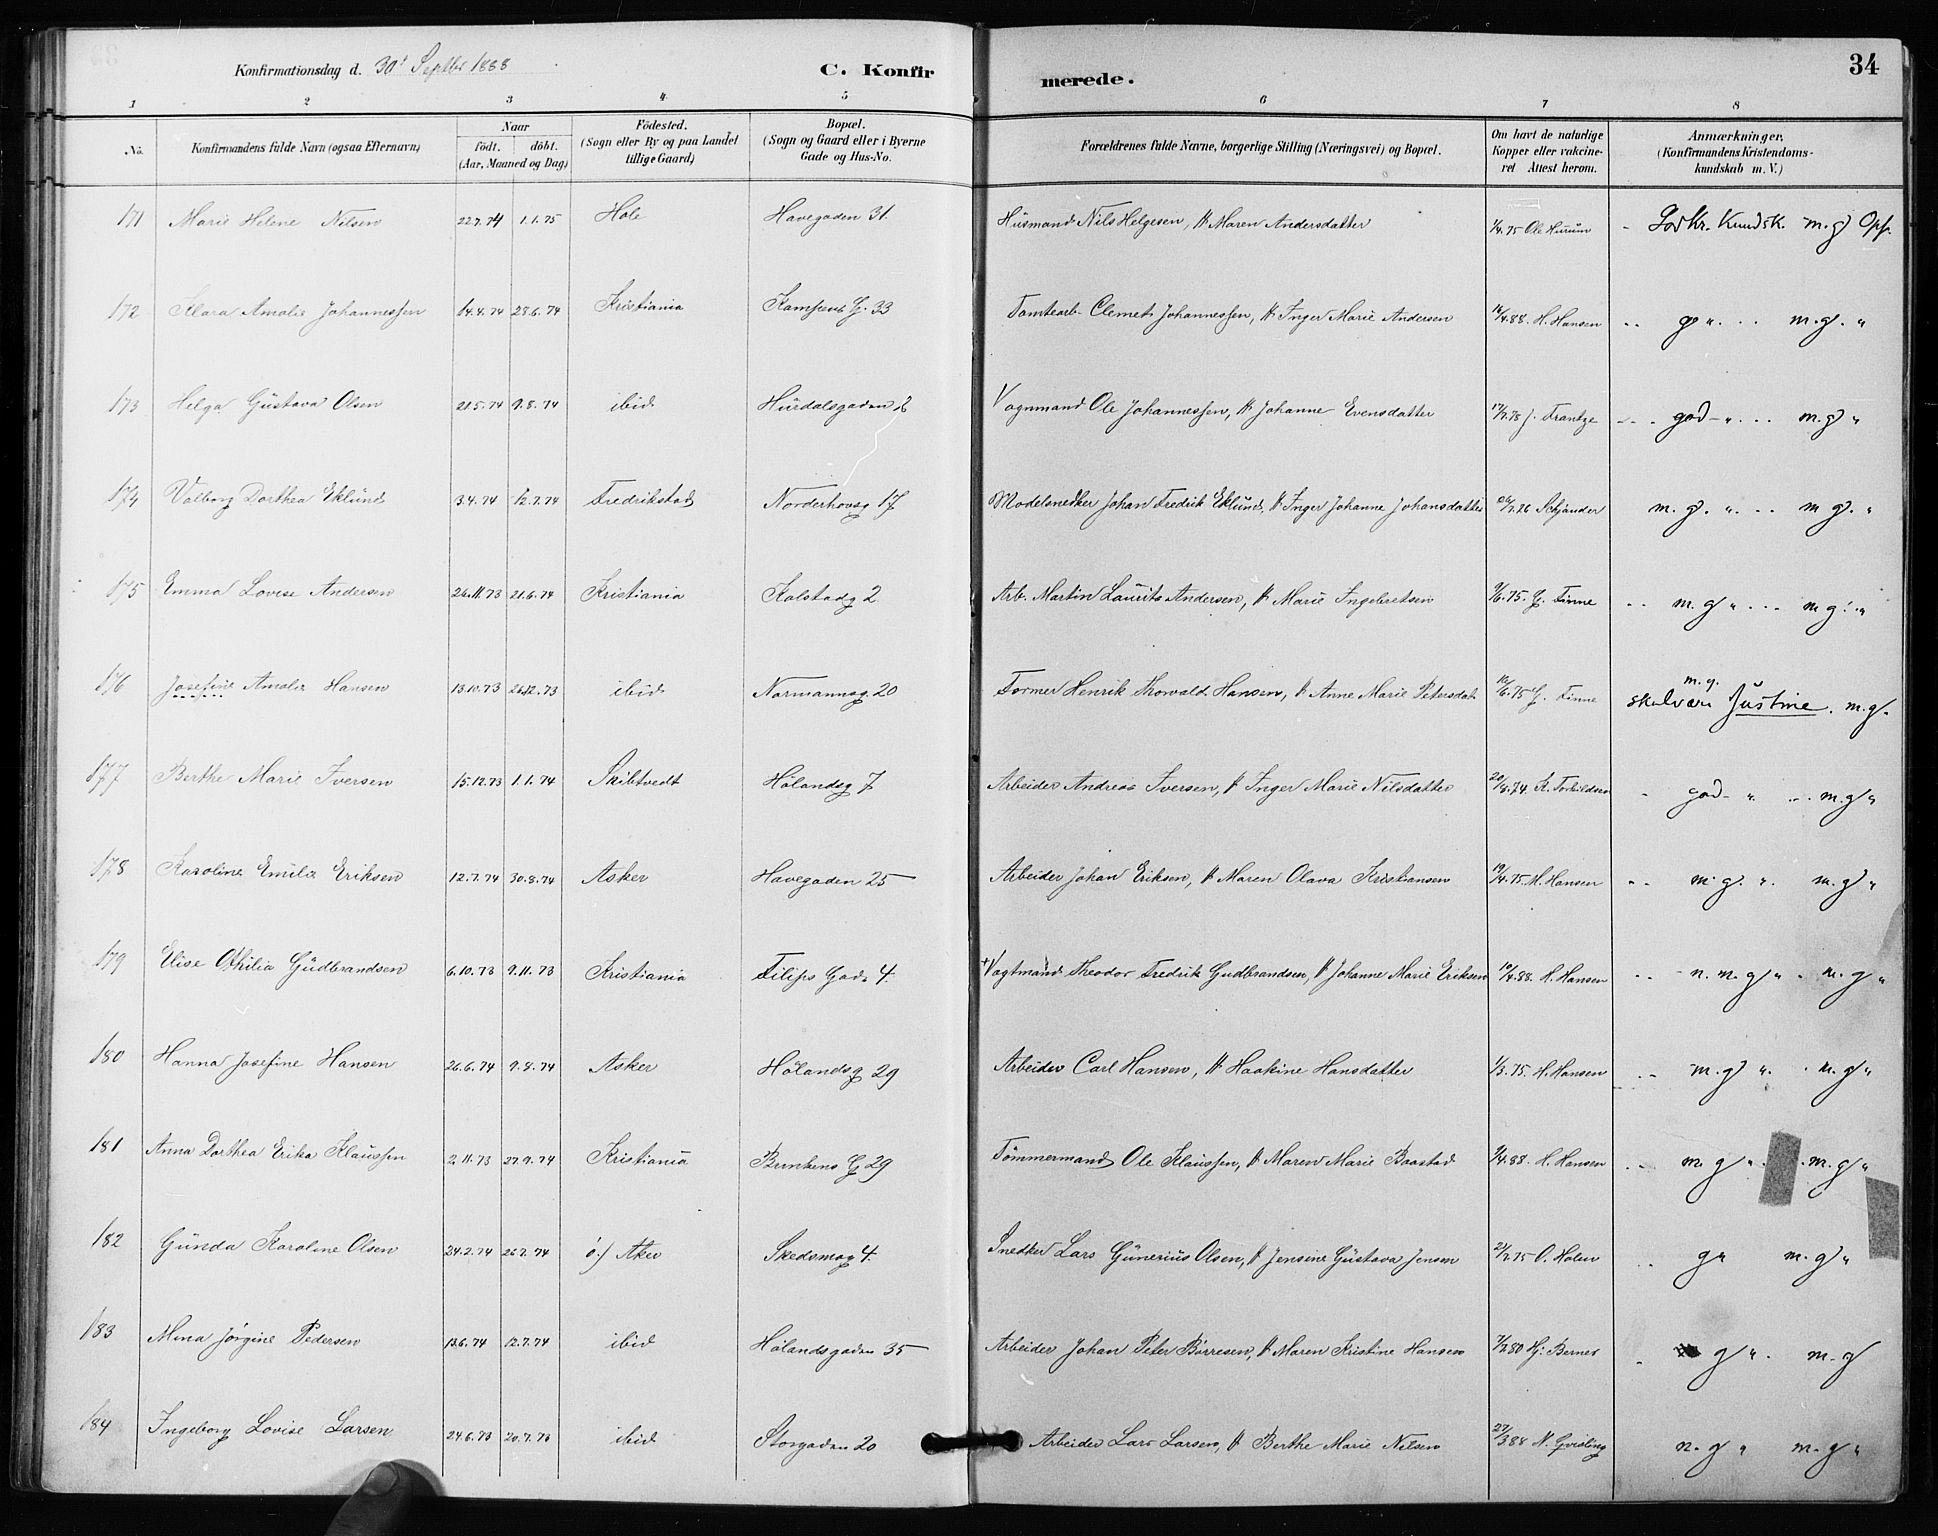 34
Konfirmationsdag d. 30te Septbr 1888 C. Konfirmerede.
1 2 3 4 5 6 7 8
No. Konfirmandens fulde Navn (ogsaa Efternavn) Naar födt. döbt. (Aar, Maaned og Dag) Födested. (Sogn eller By og paa Landet tillige Gaard) Bopæl. (Sogn og Gaard eller i Byerne Gade og Hus-No. Forældrenes fulde Navne, borgerlige Stilling (Næringsvei) og Bopæl. Om havt de naturlige Kopper eller vakcineret Attest herom. Anmærkninger. (Konfirmandens Kristendomskundskab m. V.)
171 Marie Helene Nilsen 22.7.74 1.1.75 Hole Havegaden 31. Husmand Nils Helgesen, & Maren Andersdatter 1/4.75 Ole Hurum - God Kr. Kundsk. m.g. Opf.
172 Klara Amalie Johannessen 14.4.74 28.6.74 Kristiania Kampens G. 33 Tomtearb. Clemet Johannessen, & Inger Marie Andersen 14/4.88. H. Hansen g " m.g. "
173 Helga Gustava Olsen 21.5.74 9.8.74 ibid Hurdalsgaden 6 Vognmand Ole Johannessen, & Johanne Evensdatter 17/7.78 J. Frantze god " m.g "
174 Valborg Dorthea Eklund 3.4.74 12.7.74 Fredrikstad Norderhovsg 17 Modelsnedker Johan Fredrik Eklund, & Inger Johanne Johansdatter 26/7.76 Schjander m.g. " m g. "
175 Emma Lovise Andersen 26.11.73 21.6.74 Kristiania Kolstadg 2 Arb. Martin Laurits Andersen, & Marie Ingebretsen 9/6.75. G. Finne m.g " m g. "
176 Josefine Amalie Hansen 13.10.73 26.12.73 ibid Normannsg 20 Former Henrik Thorvald Hansen, & Anne Marie Petersdat 12/6.75 G. Finne m.g. skal være Justine. m.g.
177 Berthe Marie Iversen 15.12.73 1.1.74 Skibtvedt Hölandsg 7 Arbeider Andreas Iversen, & Inger Marie Nilsdatter 20/8.74. K. Torkildsen god " m.g "
178 Karoline Emilie Eriksen 12.7.74 30.8.74 Asker Havegaden 25 Arbeider Johan Eriksen, & Maren Olava Kristiansen 19/4.75 M. Hansen m.g. " m.g "
179 Elise Othilia Gudbrandsen 6.10.73 9.11.73 Kristiania Filips Gade 4. +Vagtmand Theodor Fredrik Gudbrandsen, & Johanne Marie Eriksen 10/4.88. H. Hansen n. m. g " m. g "
180 Hanna Josefine Hansen 26.6.74 9.8.74 Asker Hölandsg 29 Arbeider Carl Hansen, & Haakine Hansdatter 1/3.75. H. Hansen m.g " m.g "
181 Anna Dorthea Erika Klaussen 2.11.73 27.9.74 Kristiania Brinkens G 29 Tömmermand Ole Klaussen, & Maren Marie Baastad 9/4.88. H. Hansen m. g " m. g "
182 Gunda Karoline Olsen 24.2.74 26.7.74 ö./ Aker Skedsmog 4. Snedker Lars Gunerius Olsen, & Jensine Gustava Jensen 21/2.75 O. Holen g " m. g "
183 Mina Jørgine Pedersen 13.6.74 12.7.74 ibid Hölandsgaden 35 Arbeider Johan Peter Börresen, & Maren Kristine Hansen 7/2.80 Hj. Berner g " m. g
184 Ingeborg Lovise Larsen 24.6.73 20.7.73 ibid Storgaden 20 Arbeider Lars Larsen, & Berthe Marie Nilsen 27/3.88 N. Qvisling n. g " m. g "